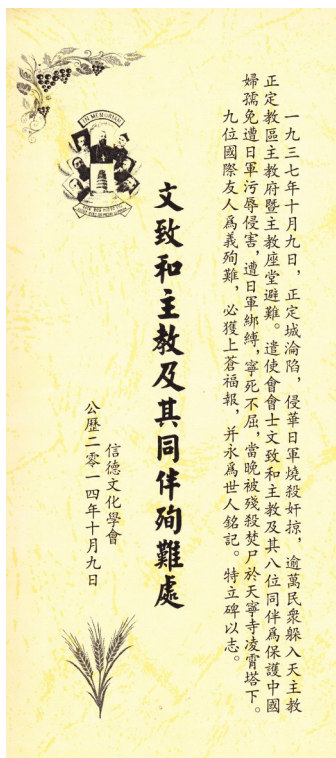 一九三七年十月九日，正定城淪陷，侵華日軍燒殺奸掠，逾萬民衆躲入天主教
正定教區主教府暨主教座堂避難。遣使會會士文致和主教及其八位同伴爲保護中國
婦孺免遭日軍污辱侵害，遭日軍綁縛，寧死不屈，當晚被殘殺焚尸於天寧寺凌霄塔下。
九位國際友人爲義殉難，必獲上蒼福報，并永爲世人銘記。特立碑以志。
文致和主教及其同伴殉難處
信德文化學會
公歷二零一四年十月九日
IN MEMORIAM